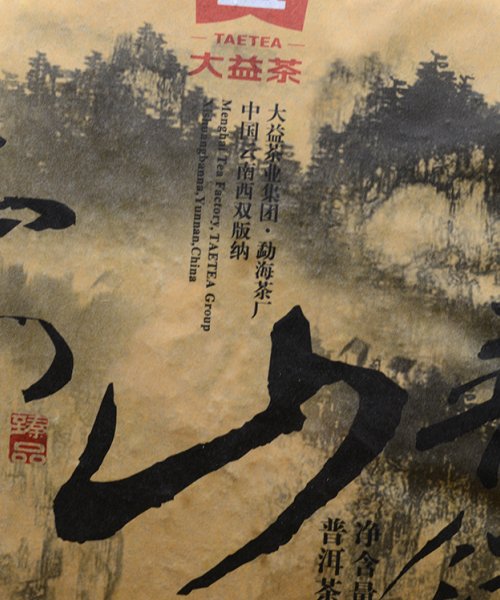 TAETEA
大益茶
大益茶业集团·勐海茶厂
中国云南西双版纳
Menghai Tea Factory, TAETEA Group
Xishuangbanna,Yunnan,China
山
臻品
净含量
普洱茶